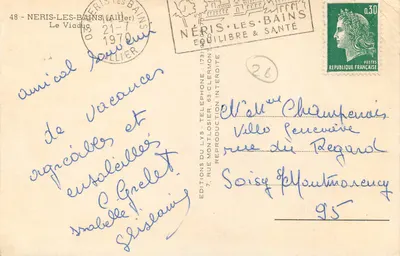 48 - NERIS-LES-BAINS (Allier)
Le Viaduc
NERIS LES BAINS
21-7
1970
ALLIER
NÉRIS-LES-BAINS
EQUILIBRE & SANTÉ
0,30
POSTES
REPUBLIQUE FRANÇAISE
26
amical souvenir
de vacances
agréables et
ensoleillées
C. Grelet
Isabelle
Ghislaine
EDITIONS DU LYS - TELEPHONE
7, RUE MONTLOSIER, 63 CLERMONT
REPRODUCTION INTERDITE
M. Mme Champenois
Villa Geneviève
rue du Regard
Soisy s/Montmorency
95